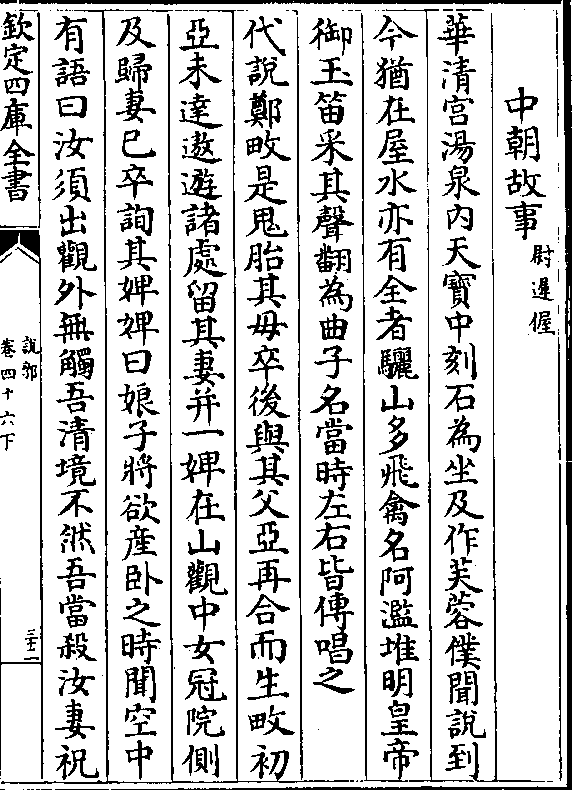 中朝故事 尉遲偓
華清宫湯泉内天寳中刻石為坐及作芙蓉僕聞說到
今猶在屋水亦有全者驪山多飛禽名阿濫堆明皇帝
御玉笛采其聲翻為曲子名當時左右皆傳唱之
代說鄭畋是䰟胎其母卒後與其父亞再合而生畋初
亞未達遨遊諸處留其妻并一婢在山觀中女冠院側
及歸妻已卒詢其婢婢曰娘子將欲産卧之時聞空中
有語曰汝須出觀外無觸吾清境不然吾當殺汝妻祝
欽定四庫全書
說郛
卷四十六下
三十二